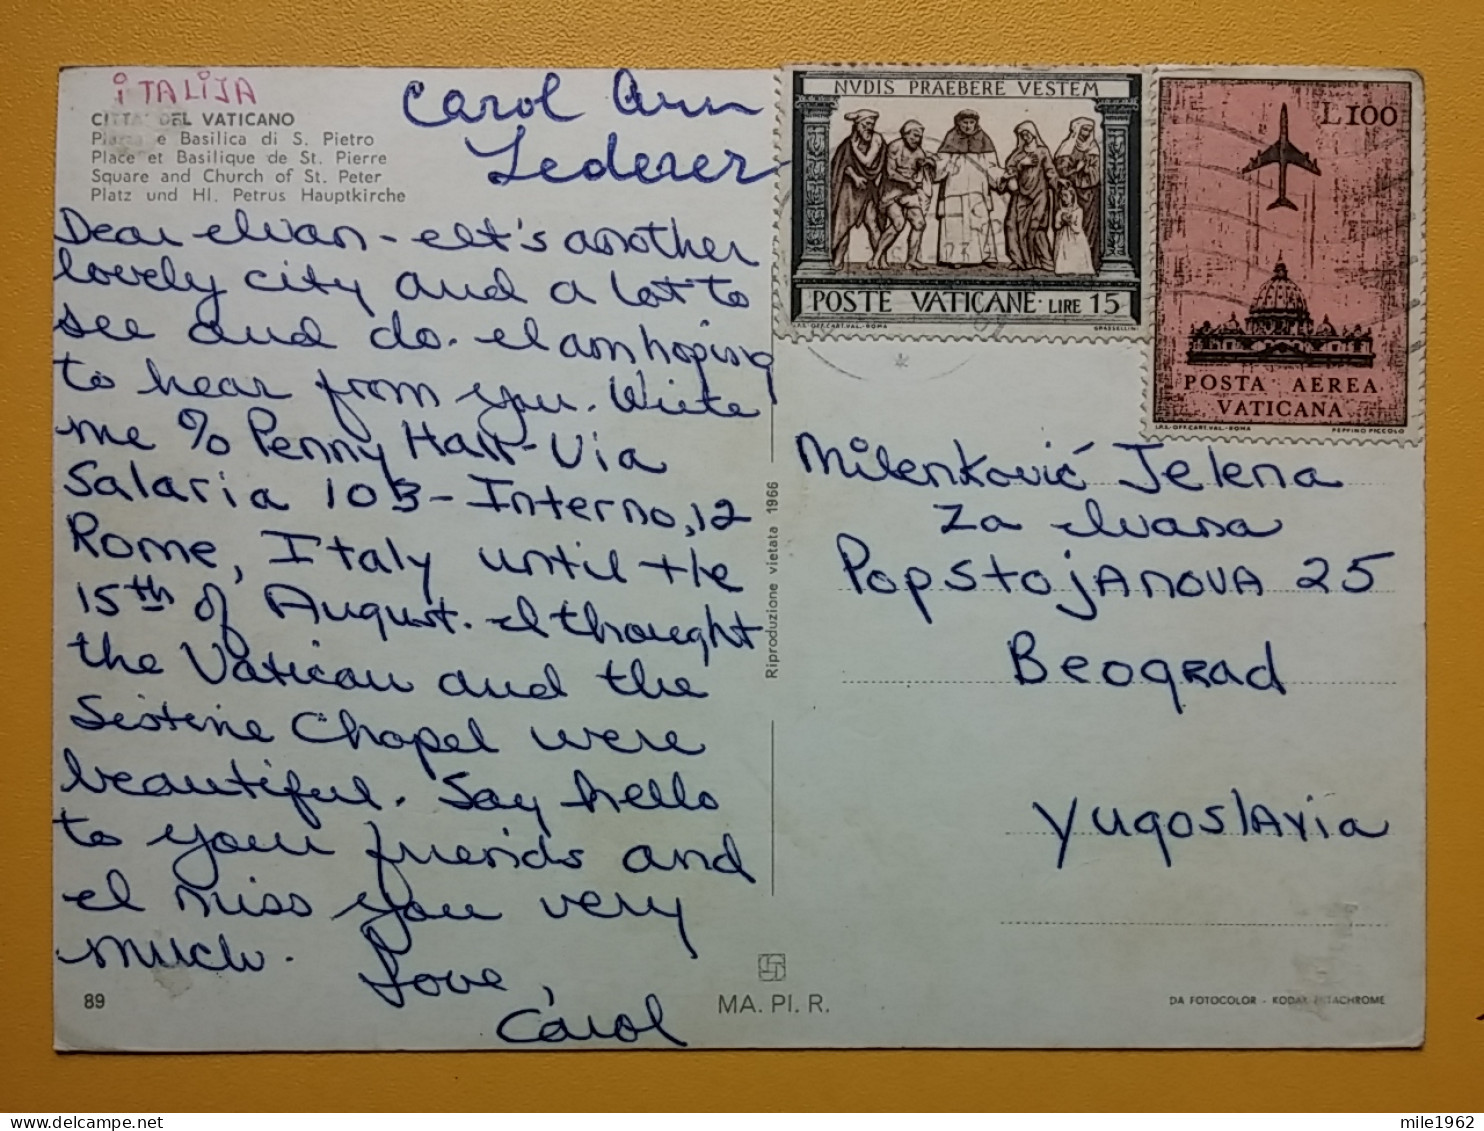 iTALiJA
CITTA' DEL VATICANO
Piazza e Basilica di S. Pietro
Place et Basilique de St. Pierre
Square and Church of St. Peter
Platz und Hl. Petrus Hauptkirche
Carol Ann
Lederer
Dear Ivan - It's another
lovely city and a lot to
see and do. I am hoping
to hear from you. Write
me % Penny Hall - Via
Salaria 103 - Interno, 12
Rome, Italy until the
15th of August. I thought
the Vatican and the
Sistine Chapel were
beautiful. Say hello
to your friends and
I miss you very
much.
Love,
Carol
89
MA. PI. R.
Riproduzione vietata 1966
NVDIS PRAEBERE VESTEM
POSTE VATICANE · LIRE 15
I.P.S.-OFF.CART.VAL.-ROMA
GRASSELLINI
L100
POSTA AEREA
VATICANA
I.P.S.-OFF.CART.VAL.-ROMA
PEPPINO PICCOLO
Milenković Jelena
Za Ivana
PopStojANOVA 25
Beograd
YugoslAvia
DA FOTOCOLOR - KODAK EKTACHROME
mile1962